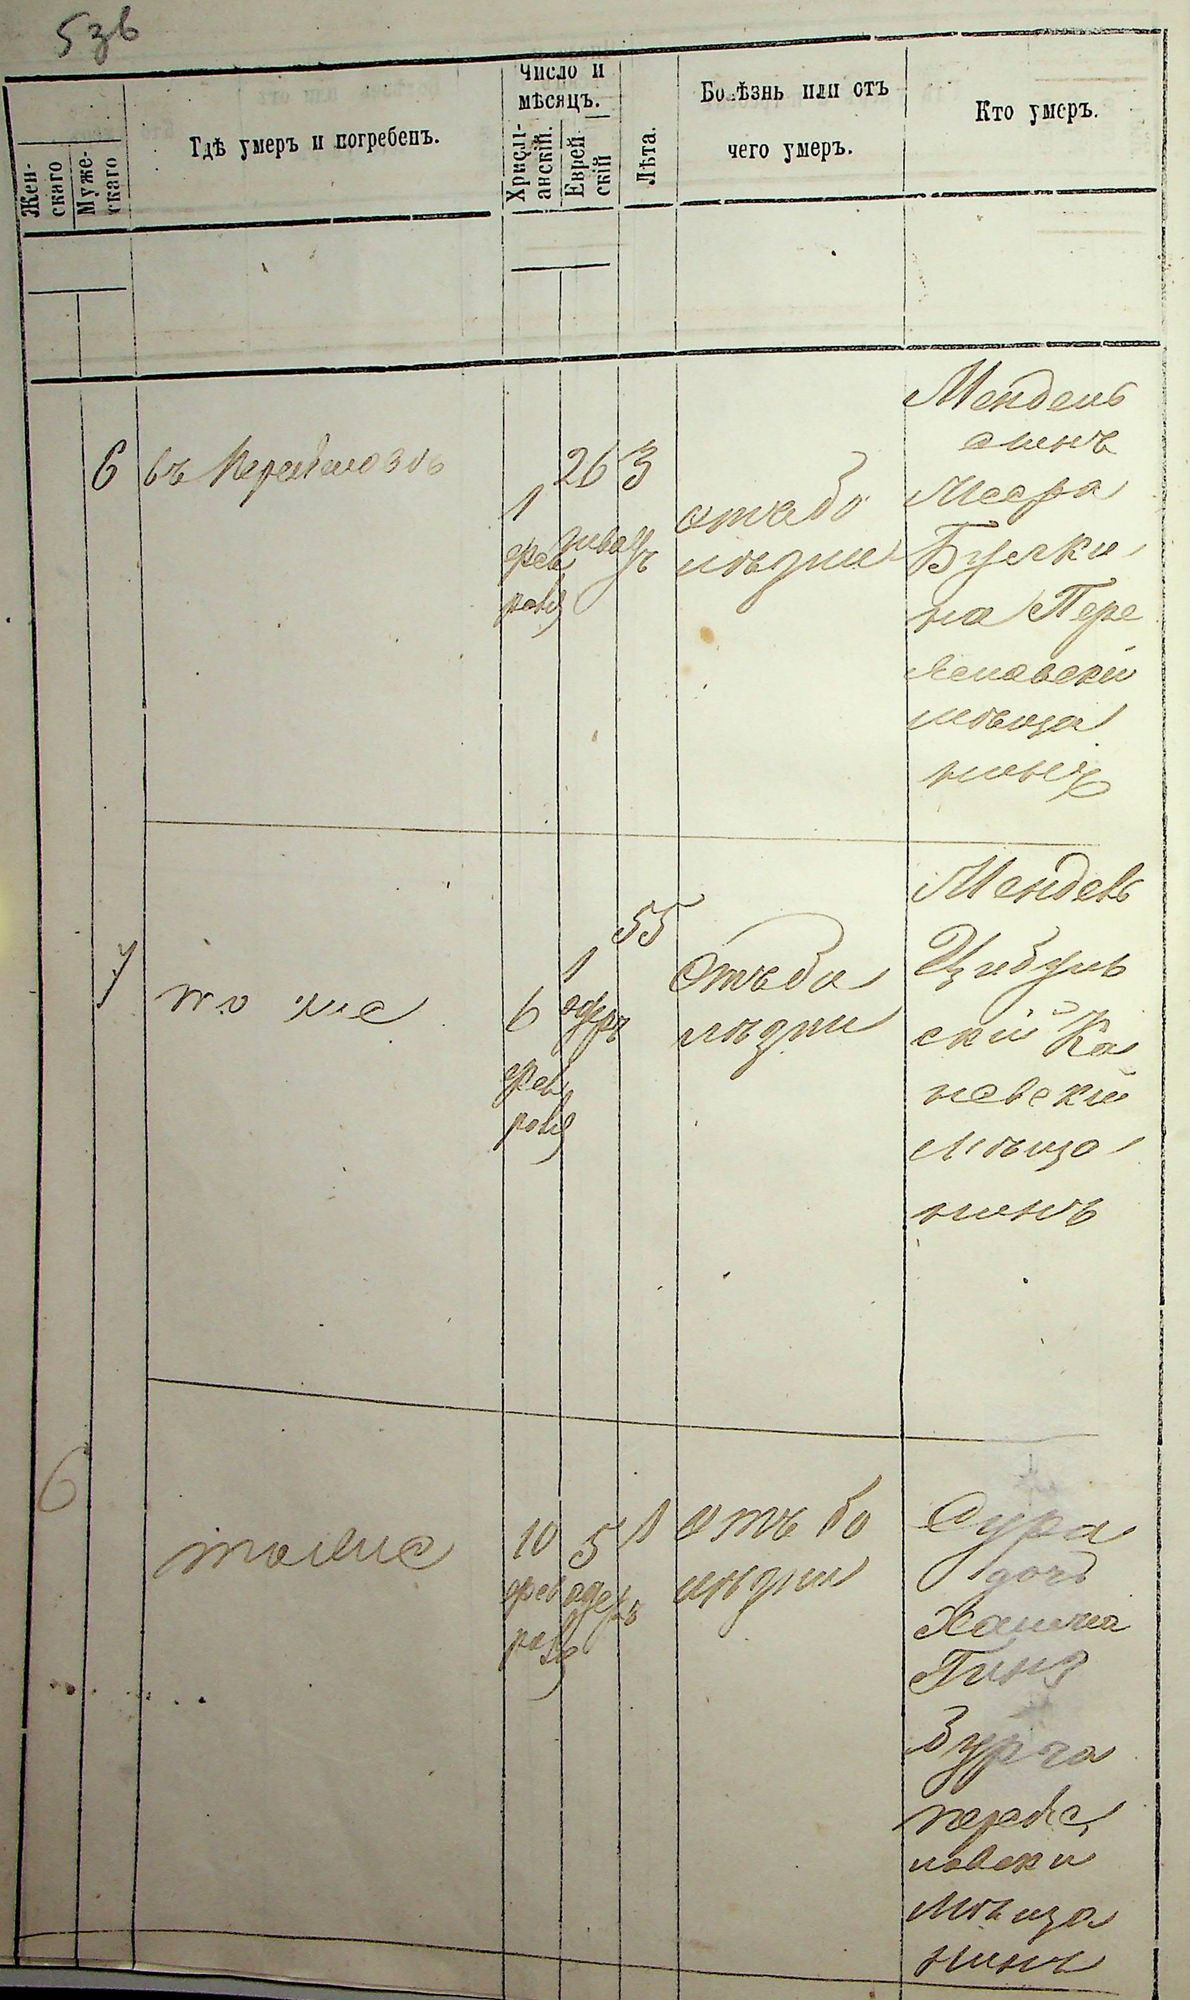 Жен-
скаго
Муже-
скаго
Гдѣ умеръ и погребенъ.
Число и
мѣсяцъ.
Христі-
анскій.
Еврей
скій
Лѣта.
Болѣзнь или отъ
чего умеръ.
Кто умеръ.
6
въ
1
фев
раля
26
3
отъ бо
лѣзни
Мендель
сынъ
Меера
на Пере
яславскій
мѣща
нинъ
7
то же
6
фев
раля
1
адеръ
55
Отъ бо
лѣзни
Мендель
Цибуль
скій Ка
невскій
мѣща
нинъ
6
тоже
10
фев
раля
5
адеръ
1
отъ бо
лѣзни
Сура
дочь
Хаима
Гинз
бурга
переяс
лавски
Мѣща
нинъ